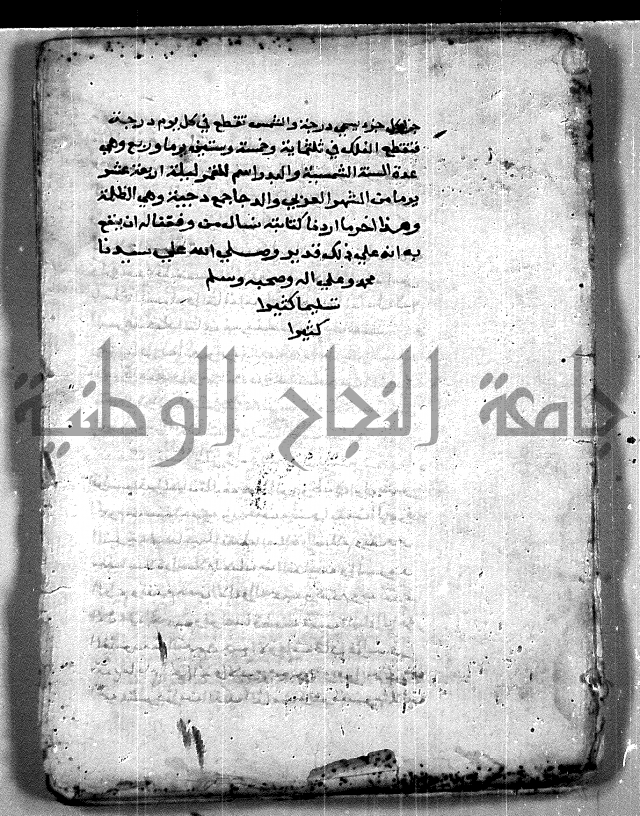 جزء كل جزء يسمي درجة والشمس تقطع في كل يوم درجة
فتقطع الفلك في ثلثماية وخمسة وستين يوما وربع وهي
عدة السنة الشمسية والبدر اسم للقمر ليلة اربعة عشر
يوما من الشهر العربي والدجا جمع دجية وهي الظلمة
وهذا اخر ما اردنا كتابته نسال من وفقنا له ان ينفع
به انه علي ذلك قدير وصلي الله علي سيدنا
محمد وعلي اله وصحبه وسلم
تسليما كثيرا
كثيرا
جامعة النجاح الوطنية